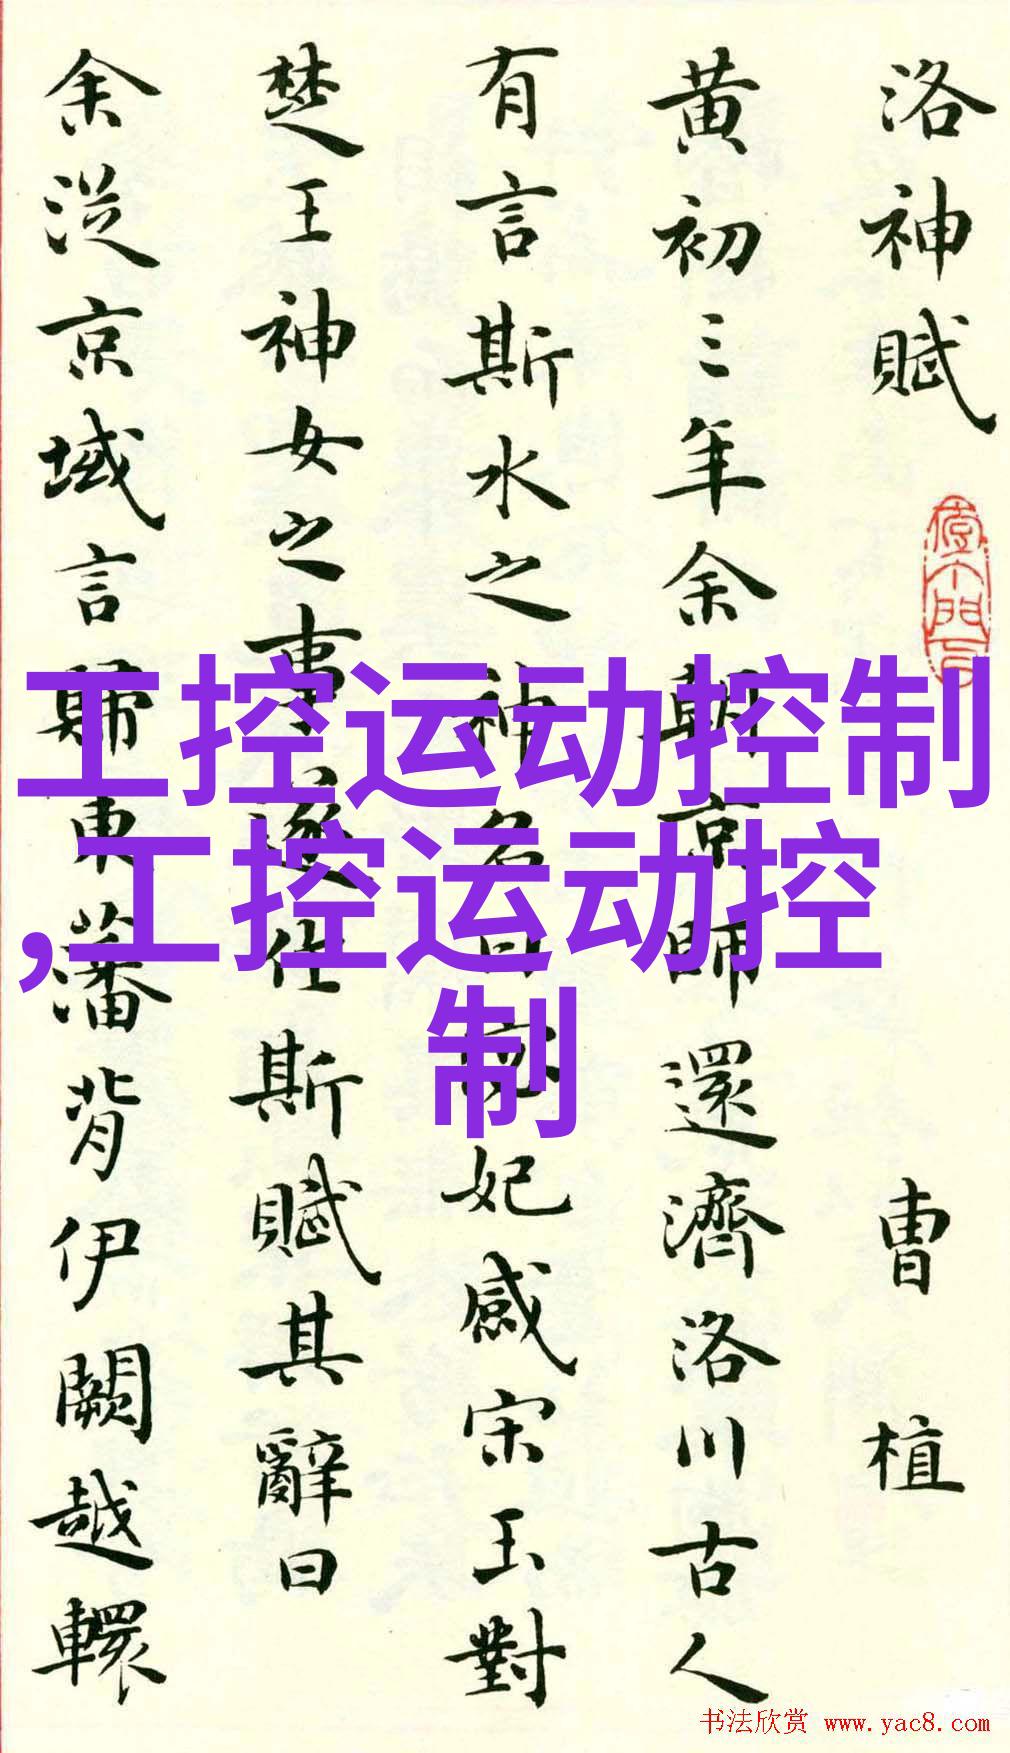 洛神赋 曹植
黄初三年余朝京師還濟洛川古人
有言斯水之神名曰宓妃感宋玉對
楚王神女之事遂作斯赋其辭曰
余從京域言歸東藩背伊闕越轘
工控运动控制
,工控运动控
制
书法欣赏 www.yac8.com